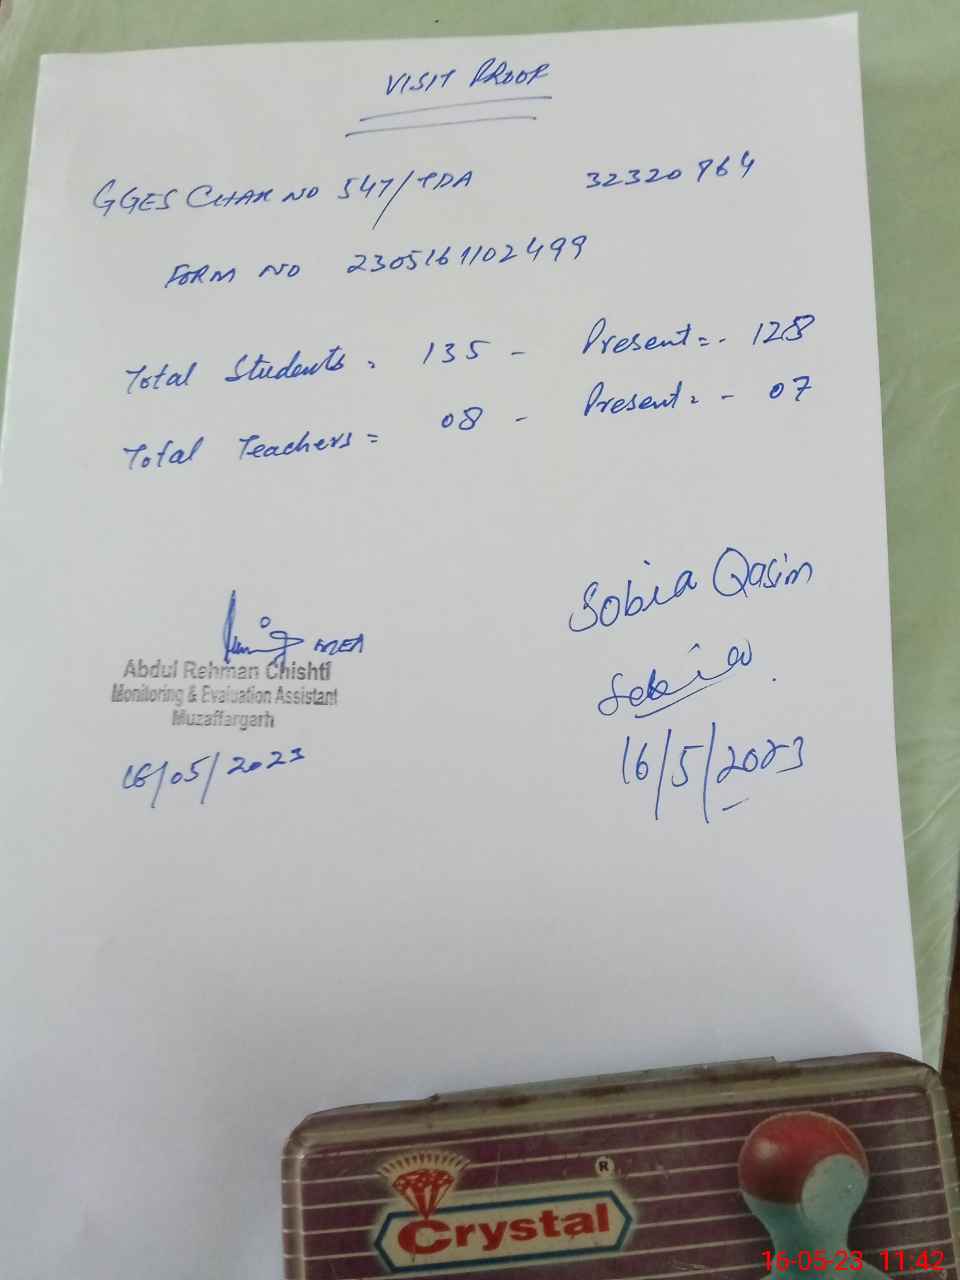 VISIT PROOF
GGES CHAK NO 547/TDA 32320764
FORM NO 2305161102499
Total Students = 135 - Present = - 128
Total Teachers = 08 - Present = - 07
Sobia Qasim
MEA
Abdul Rehman Chishti
Monitoring & Evaluation Assistant
Muzaffargarh
Sobia
16/05/2023
16/5/2023
Crystal
®
16-05-23 11:42